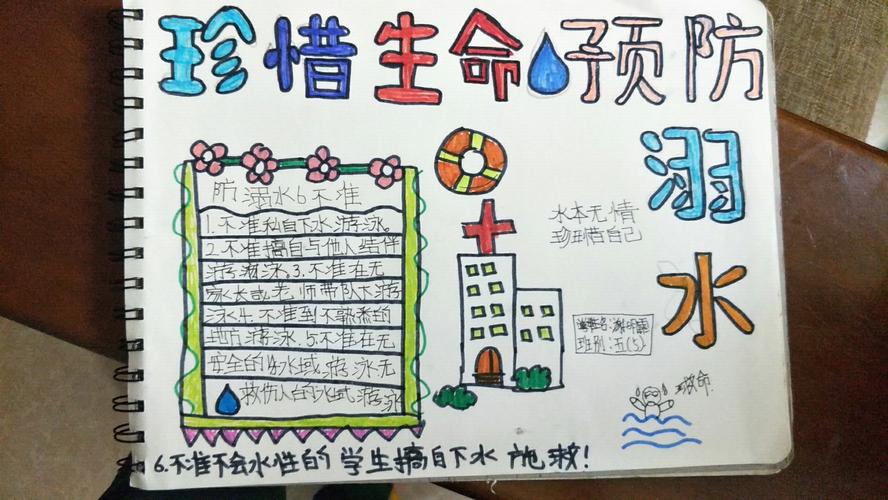 珍惜生命预防
溺水
防溺水6不准
1.不准私自下水游泳。
2.不准擅自与他人结伴
游泳.3.不准在无
家长或老师带队下游
泳4.不准到不熟悉的
地方游泳.5.不准在无
安全的水域游泳无
救伤人的水域游泳
6.不准不会水性的学生擅自下水施救!
水本无情
珍惜自己
姓名:谢
班别:五(5)
救命